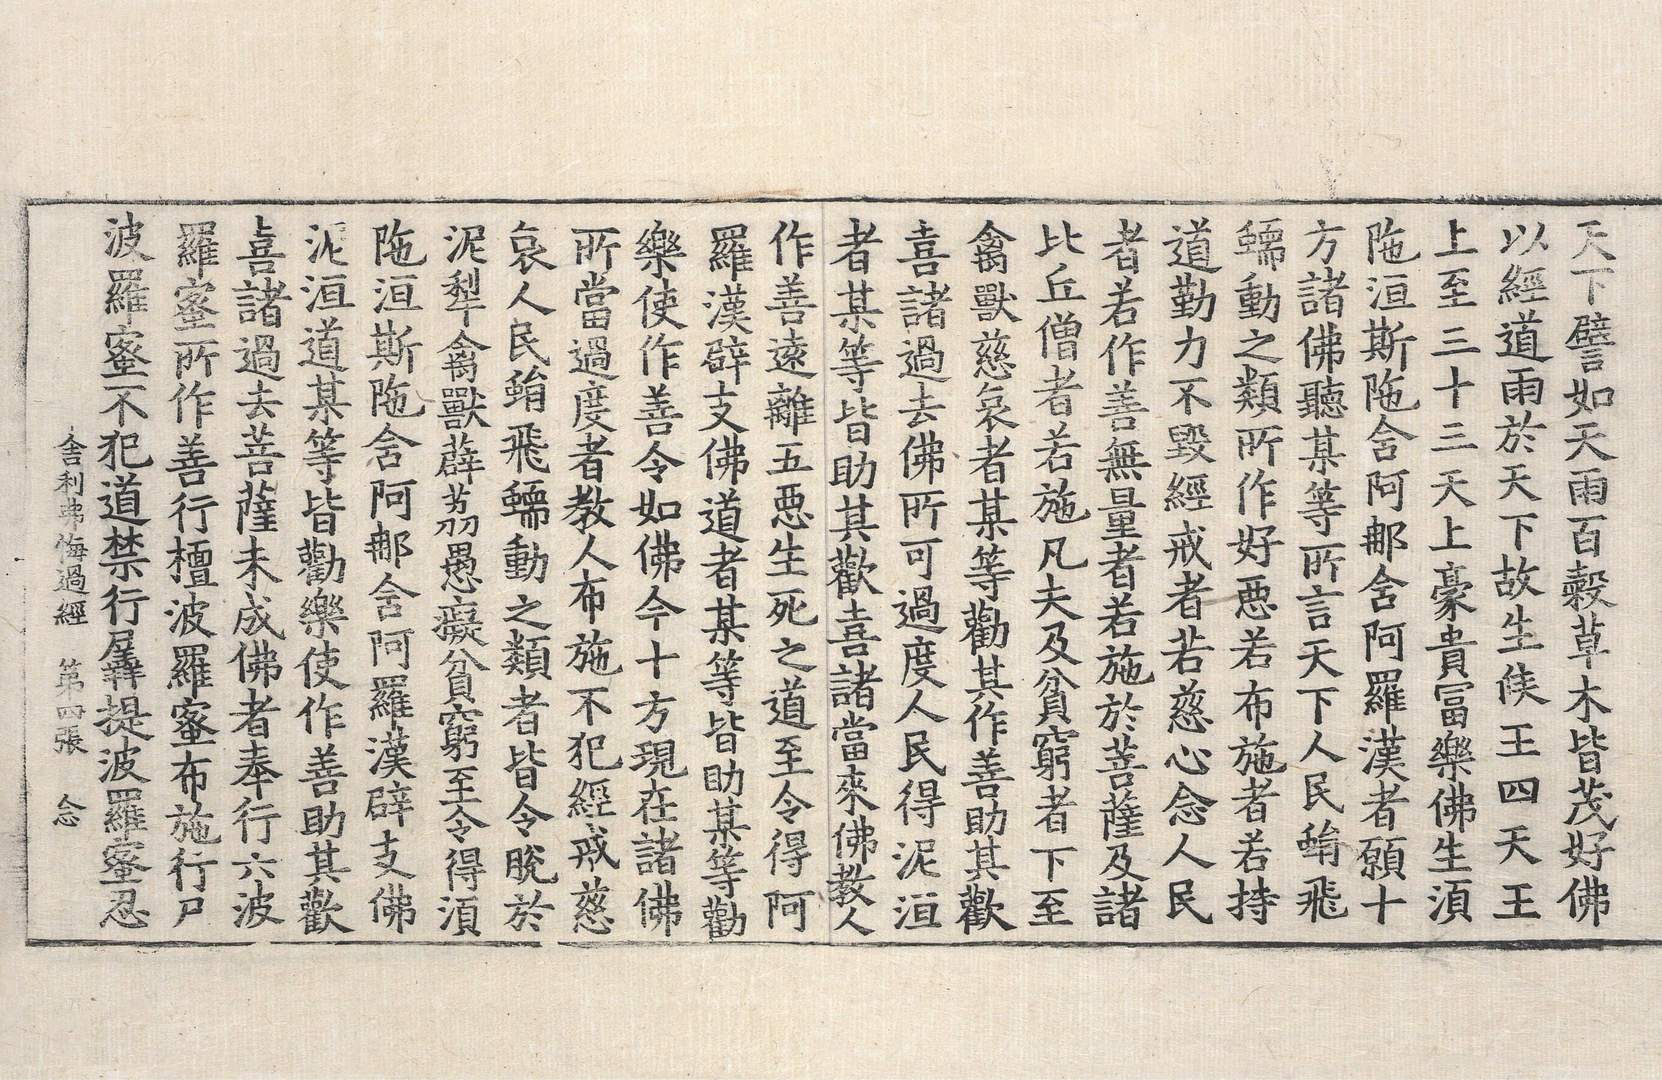 天下譬如天雨百穀草木皆茂好佛
以經道雨於天下故生侯王四天王
上至三十三天上豪貴冨樂佛生湏
陁洹斯陁含阿那含阿羅漢者願十
方諸佛聽某等所言天下人民蜎飛
蠕動之類所作好惡若布施者若持
道勤力不毀經戒者若慈心念人民
者若作善無量者若施於菩薩及諸
比丘僧者若施凡夫及貧窮者下至
禽獸慈哀者某等勸其作善助其歡
喜諸過去佛所可過度人民得泥洹
者某等皆助其歡喜諸當來佛教人
作善遠離五惡生死之道至令得阿
羅漢辟支佛道者某等皆助某等勸
樂使作善令如佛今十方現在諸佛
所當過度者教人布施不犯經戒慈
哀人民蜎飛蠕動之類者皆令脫於
泥犁禽獸薜荔愚癡貧窮至令得湏
陁洹斯陁含阿那含阿羅漢辟支佛
泥洹道某等皆勸樂使作善助其歡
喜諸過去菩薩未成佛者奉行六波
羅蜜所作善行檀波羅蜜布施行尸
波羅蜜不犯道禁行羼提波羅蜜忍
舍利弗悔過經 第四張 念